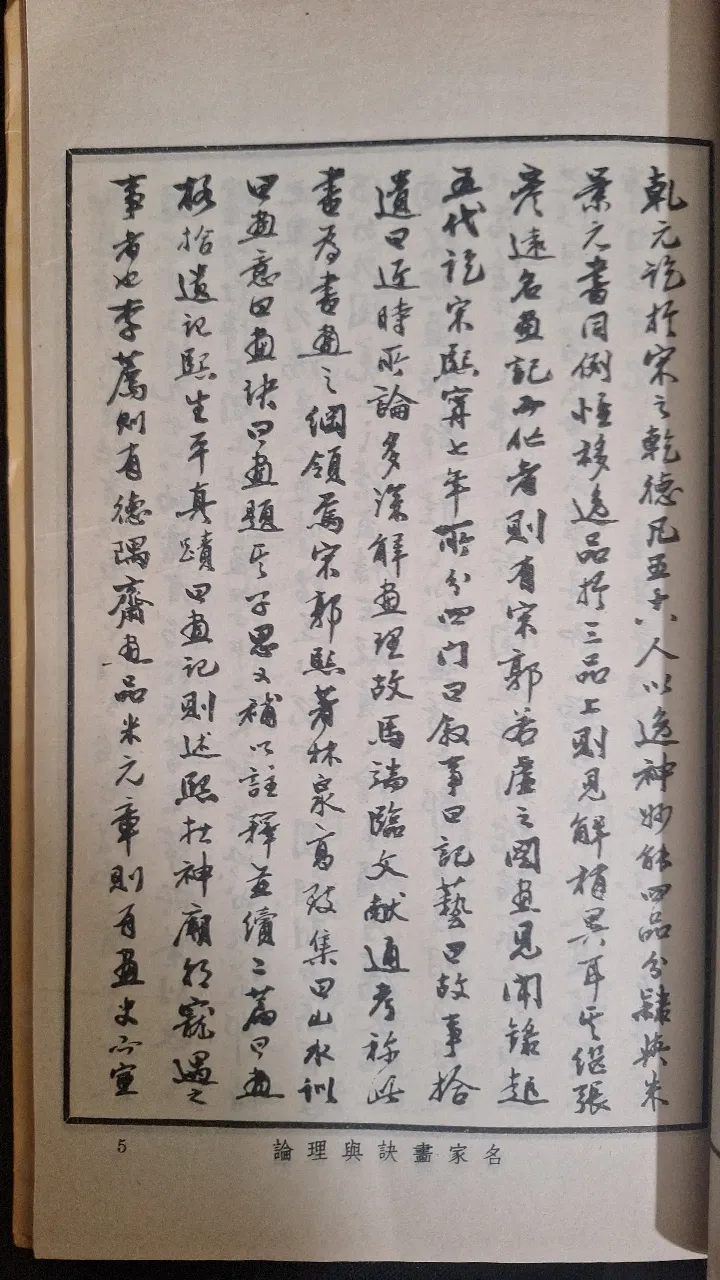 乾元訖於宋之乾德凡五十八人以逸神妙能四品分隸與朱
景元書同例惟移逸品於三品上則見解稍異耳其繼張
彥遠名畫記而作者則有宋郭若虛之圖畫見聞錄起
五代訖宋熙甯七年所分四門曰敘事曰記藝曰故事拾
遺曰近時所論多深解畫理故馬端臨文献通考称此
書為書畫之綱領焉宋郭熙著林泉高致集曰山水訓
曰畫意曰畫訣曰畫題其子思又補以註釋並續二篇曰畫
格拾遺記熙生平真蹟曰畫記則述熙在神廟朝寵遇之
事者也李薦則有德隅齋畫品米元章則有畫史而宣
名家畫訣與理論
5